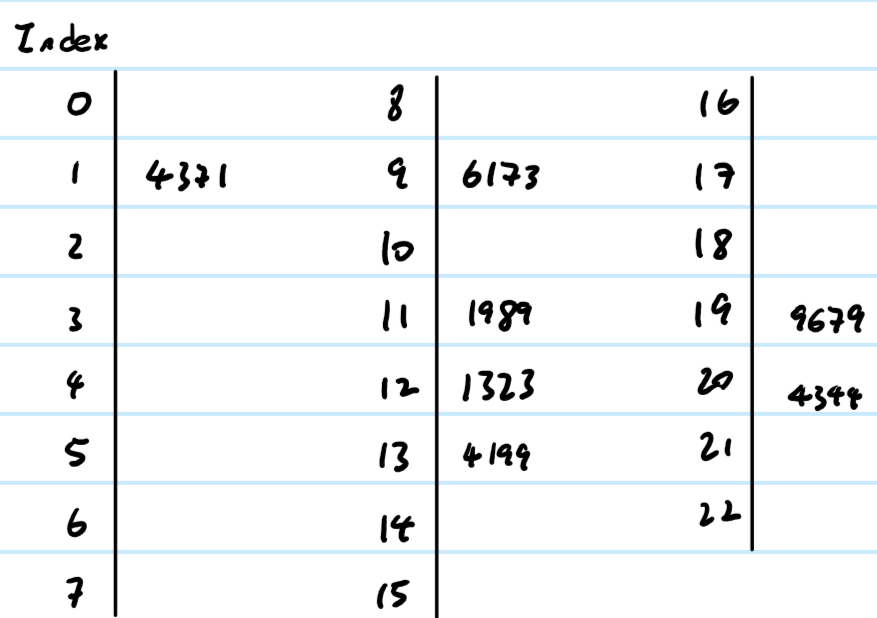 Index
0 8 16
1 4371 9 6173 17
2 10 18
3 11 1989 19 9679
4 12 1323 20 4344
5 13 4199 21
6 14 22
7 15